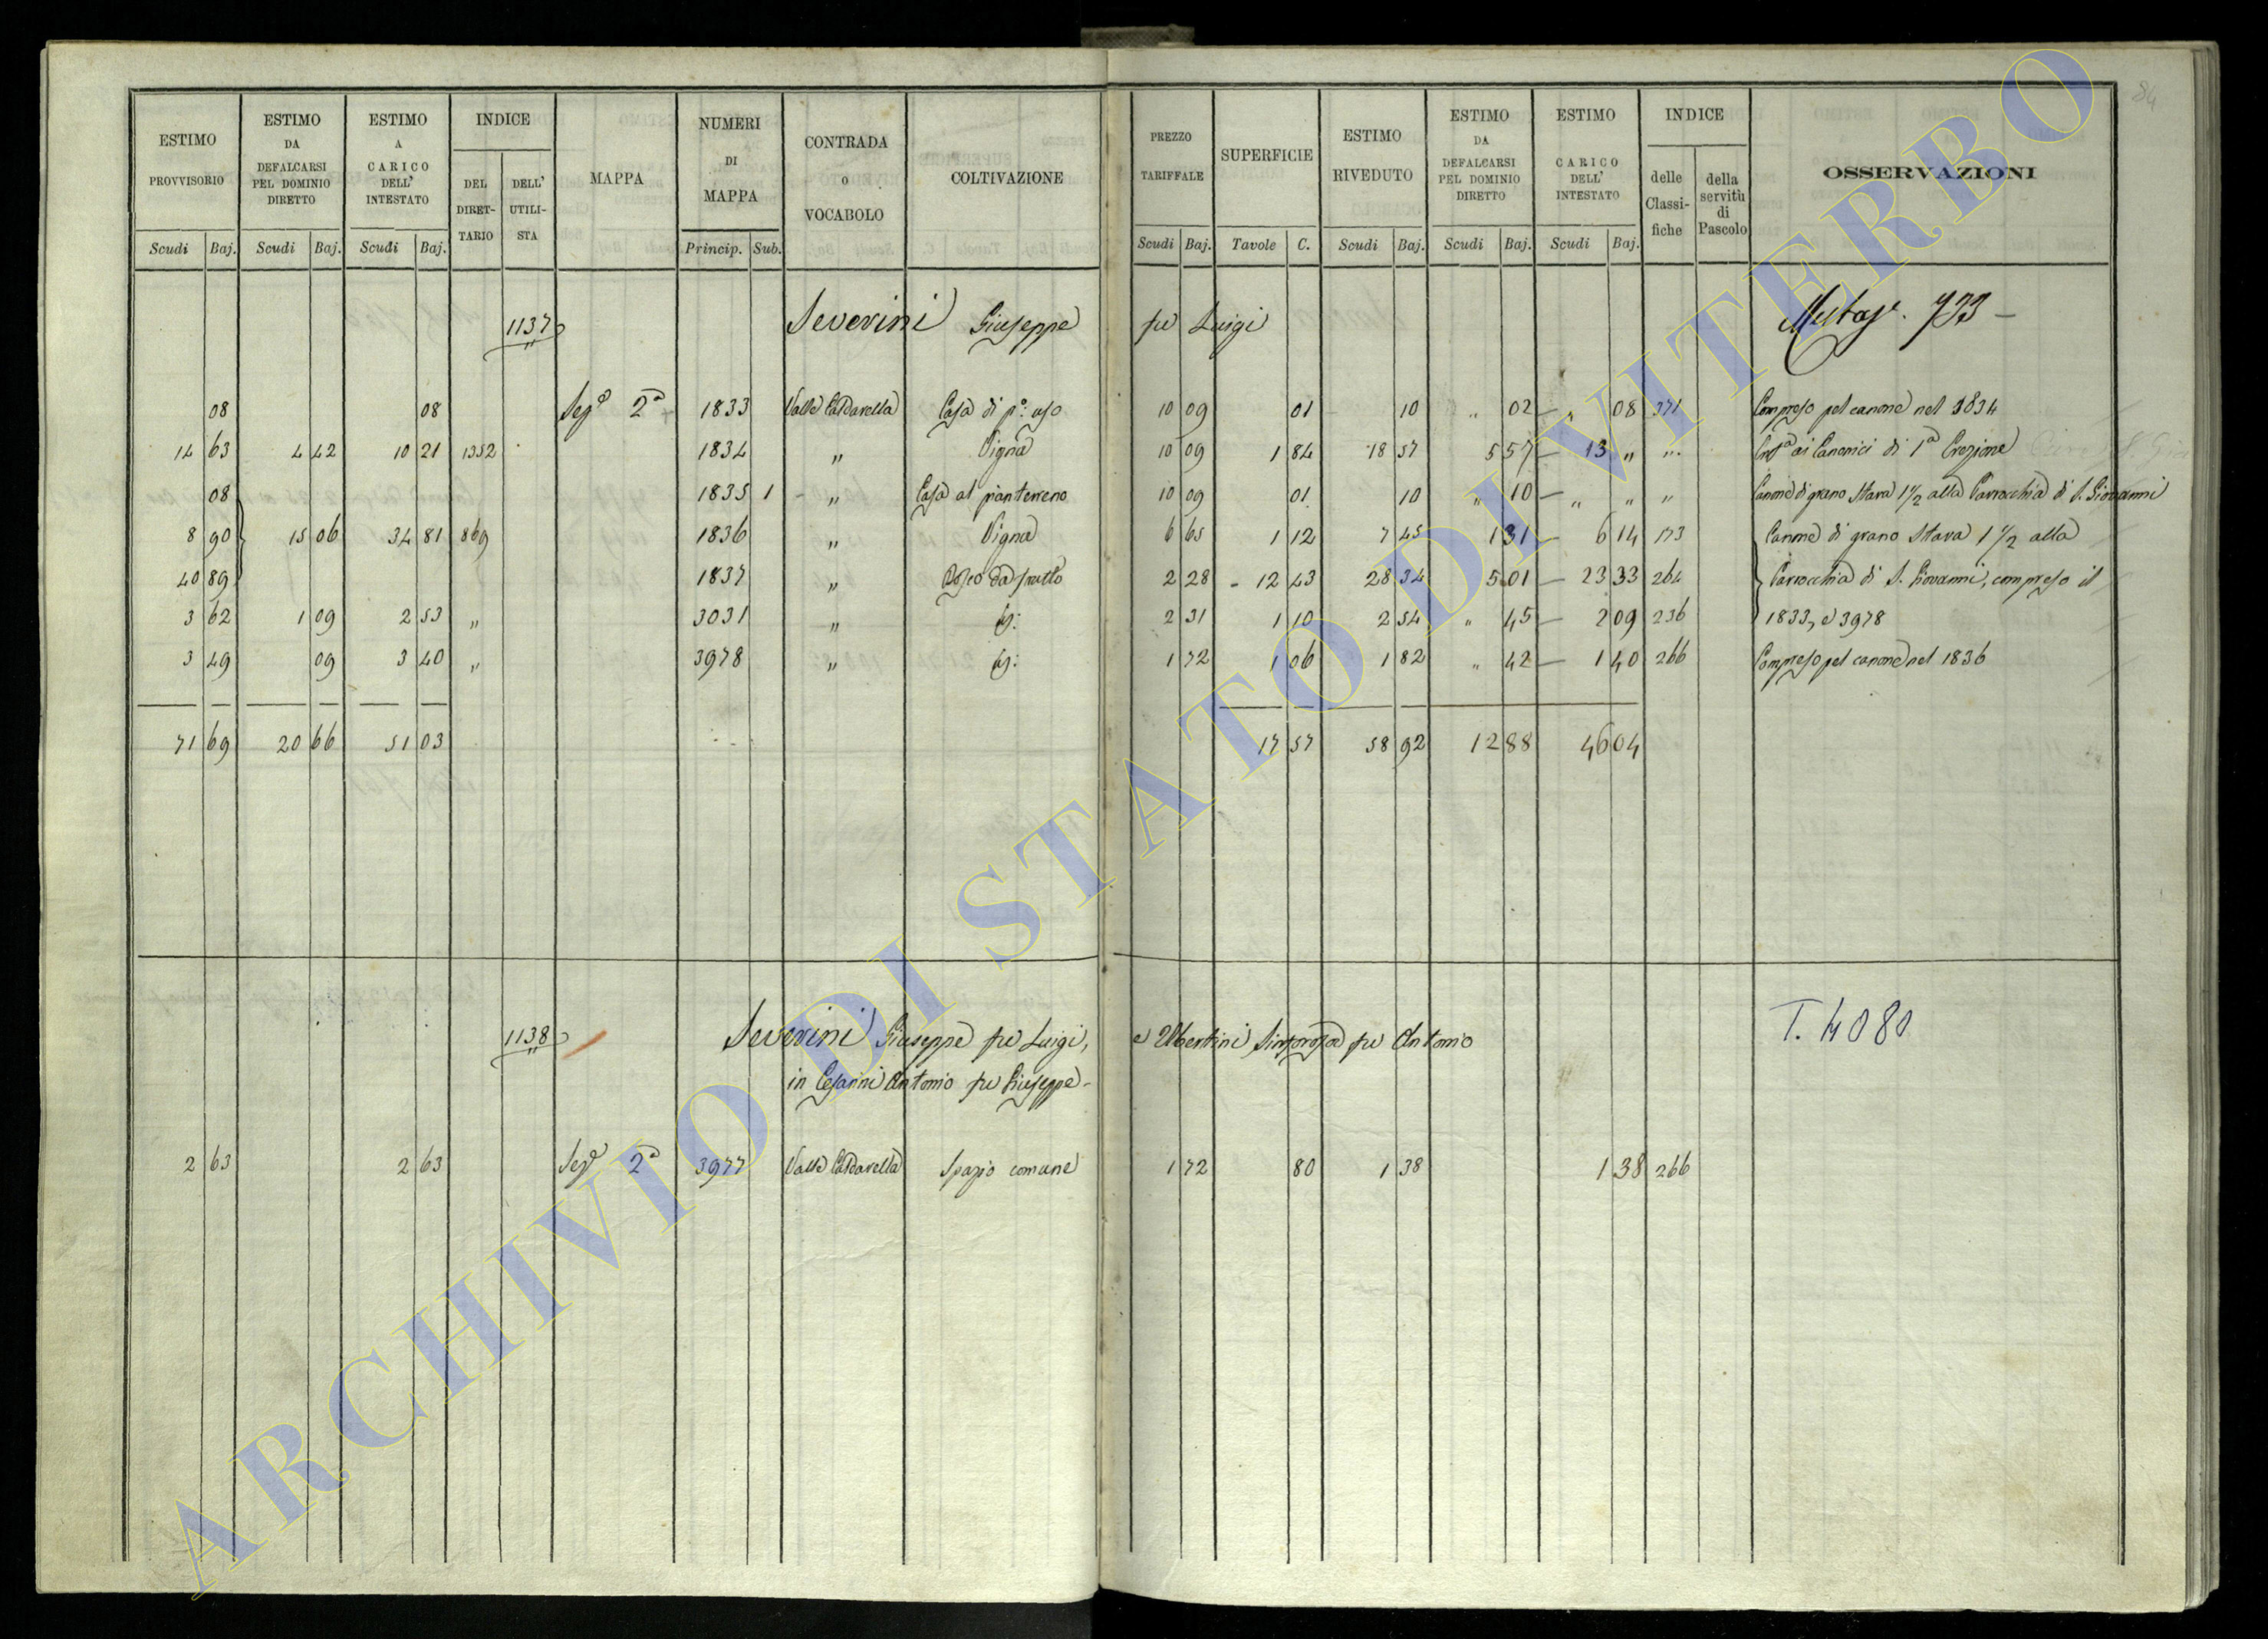 84
ESTIMO PROVVISORIO | ESTIMO DA DEFALCARSI PEL DOMINIO DIRETTO | ESTIMO A CARICO DELL' INTESTATO | INDICE | MAPPA | NUMERI DI MAPPA | CONTRADA O VOCABOLO | COLTIVAZIONE | PREZZO TARIFFALE | SUPERFICIE | ESTIMO RIVEDUTO | ESTIMO DA DEFALCARSI PEL DOMINIO DIRETTO | ESTIMO CARICO DELL' INTESTATO | INDICE | OSSERVAZIONI
DEL DIRET-TARIO | DELL' UTILI-STA | delle Classi-fiche | della servitù di Pascolo
Scudi | Baj. | Scudi | Baj. | Scudi | Baj. | Princip. | Sub. | Scudi | Baj. | Tavole | C. | Scudi | Baj. | Scudi | Baj. | Scudi | Baj.
1137 Severini Giuseppe fu Luigi 733 —
08 | 08 | Sezᵉ 2ª | 1833 | Valle Caldarella | Casa di pº: uso | 10 09 | 01 | 10 | " 02 | " 08 | 371 | Compreso pel canone nel 1834
14 63 | 4 42 | 10 21 | 1352 | 1834 | " | Vigna | 10 09 | 1 84 | 18 57 | 5 57 | 13 " | " | ai Canonici di 1ª Erezione
08 | 1835 1 | " | Casa al pianterreno | 10 09 | 01 | 10 | " 10 | " " | " | Canone di grano Stara 1 1/2 alla Parrocchia di S. Giovanni
8 90 | 15 06 | 34 81 | 869 | 1836 | " | Vigna | 6 65 | 1 12 | 7 45 | 1 31 | 6 14 | 173 | Canone di grano Stara 1 1/2 alla
40 89 | 1837 | " | Bosco da frutto | 2 28 | 12 43 | 28 34 | 5 01 | 23 33 | 264 | Parrocchia di S. Giovanni, compreso il
3 62 | 1 09 | 2 53 | " | 3031 | " | id: | 2 31 | 1 10 | 2 54 | " 45 | 2 09 | 236 | 1833, e 3978
3 49 | 09 | 3 40 | " | 3978 | " | id: | 1 72 | 1 06 | 1 82 | " 42 | 1 40 | 266 | Compreso pel canone nel 1836
71 69 | 20 66 | 51 03 | 17 57 | 58 92 | 12 88 | 46 04
1138 Severini Giuseppe fu Luigi, e Ubertini Sinforosa fu Antonio T. 4080
in Cesarini Antonio fu Giuseppe -
2 63 | 2 63 | Sezᵉ 2ª | 3977 | Valle Caldarella | Spazio comune | 1 72 | 80 | 1 38 | 1 38 | 266
ARCHIVIO DI STATO DI VITERBO